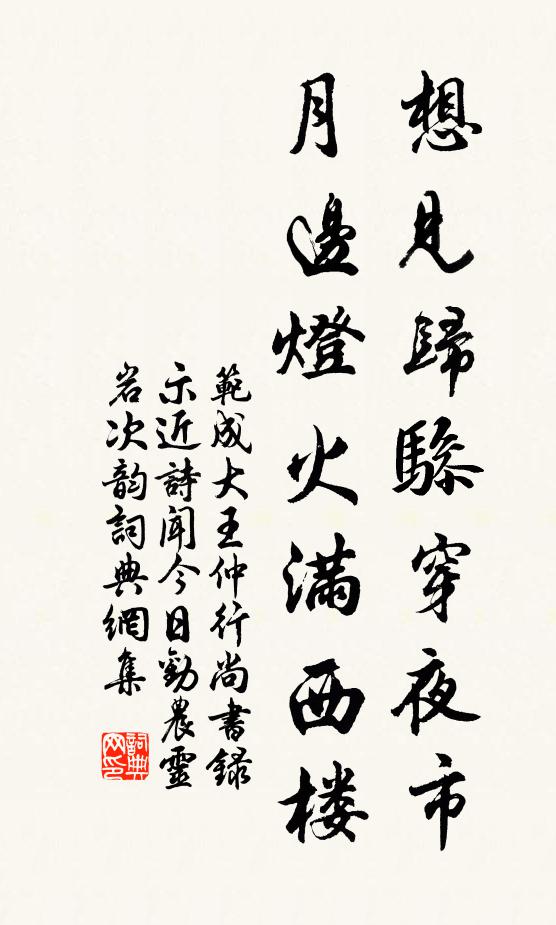 想見歸驂穿夜市
月邊燈火滿西楼
範成大王仲行尚書録
示近詩聞今日勸農靈
岩次韵詞典網集
詞典网印